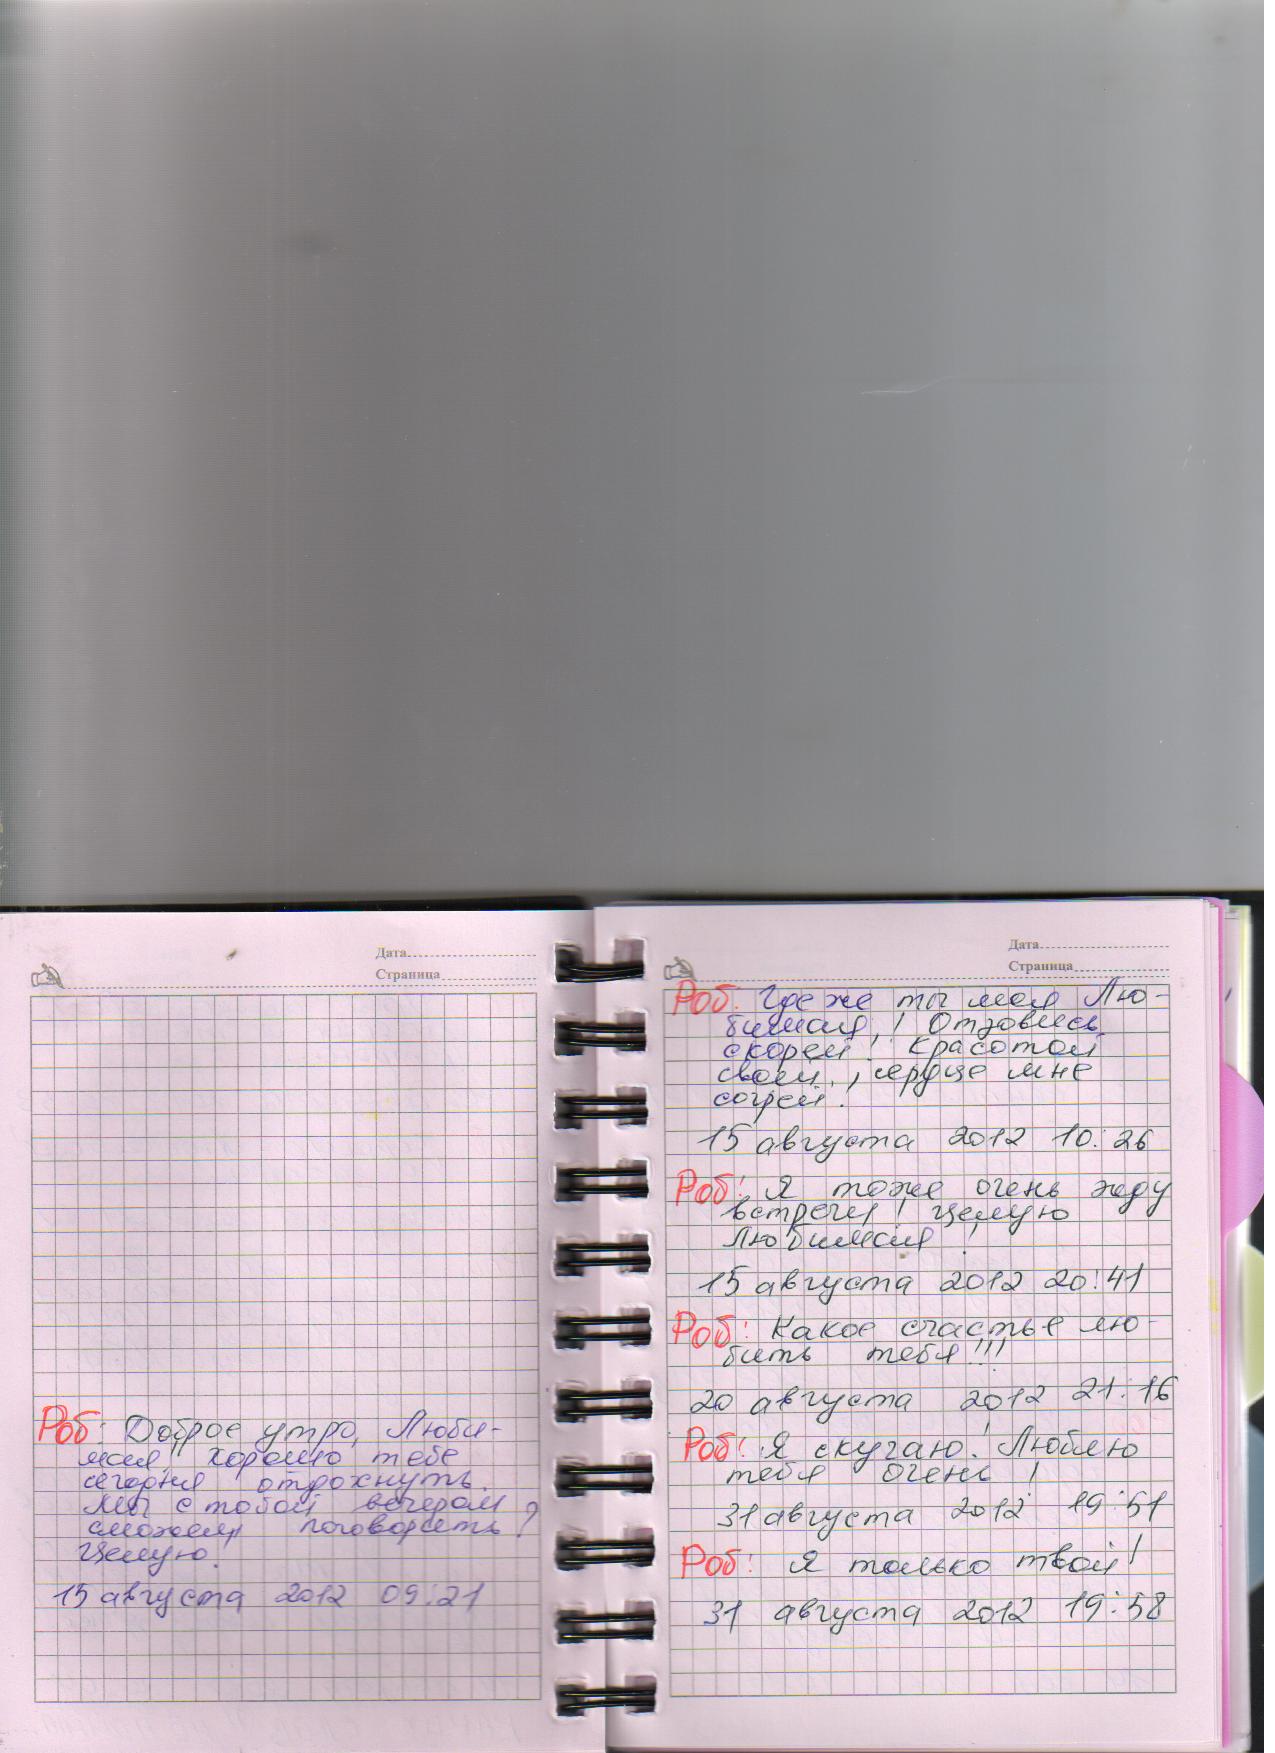 Дата
Страница
Роб: Доброе утро, Люби-
мая! Хорошо тебе
сегодня отдохнуть.
Мы с тобой вечером
сможем поговорить?
Целую!
15 августа 2012 09:21
Дата
Страница
Роб: Где же ты моя Лю-
бимая! Отзовись
скорей! Красотой
своей, сердце мне
согрей!
15 августа 2012 10:26
Роб: Я тоже очень жду
встречи! Целую
Любимая!
15 августа 2012 20:41
Роб: Какое счастье лю-
бить тебя!!!
20 августа 2012 21:16
Роб: Я скучаю! Люблю
тебя очень!
31 августа 2012 19:51
Роб: Я только твой!
31 августа 2012 19:58